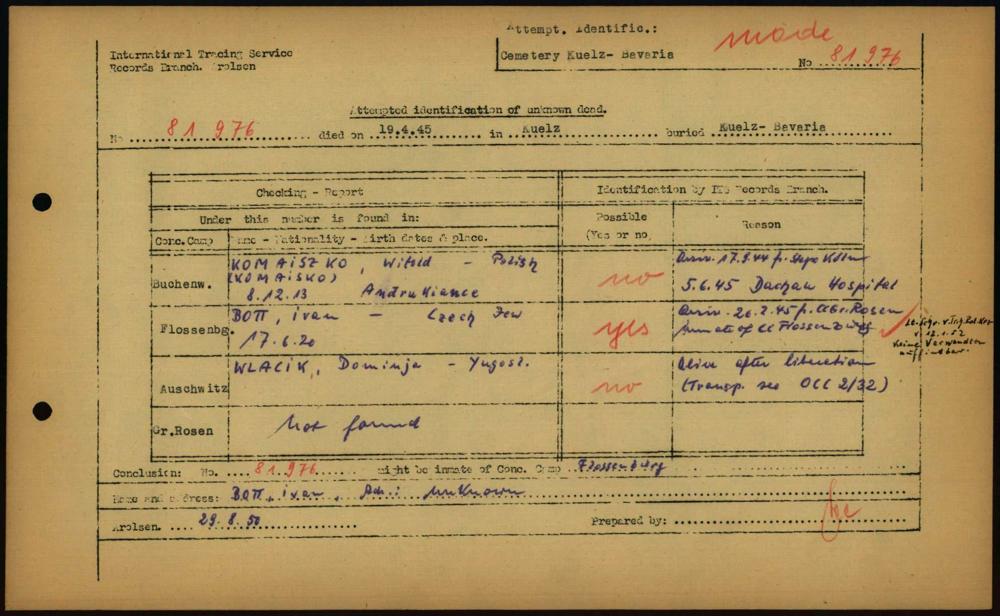 Attempt. Identific.:
Cemetery Kuelz- Bavaria
made
No 81976
International Tracing Service
Records Branch. Arolsen
Attempted identification of unknown dead.
No 81976 died on 19.4.45 in Kuelz buried Kuelz- Bavaria
Checking - Report
Identification by ITS Records Branch.
Under this number is found in:
Possible
(Yes or no)
Reason
Conc.Camp
Name - Nationality - Birth dates & place.
Buchenw.
KOMAISZKO, Witold - Polish
(KOMAISKO)
8.12.13
no
Arriv. 17.9.44 fr. Stapo Köln
5.6.45 Dachau Hospital
Flossenbg.
BOTT, ivan - Czech Jew
17.6.20
yes
Arriv. 26.2.45 f. CC Gr. Rosen
Inmate of CC Flossenbürg
v. 12.1.52
keine Verwandten
auffindbar.
Auschwitz
WLACIK, Dominja - Yugosl.
no
Alive after liberation
(Transp. see OCC 2/32)
Gr.Rosen
Not found
Conclusion: No. 81976 might be inmate of Conc. Camp Flossenbürg
Name and address: BOTT, ivan, Adr.: unknown
Arolsen. 29.8.50
Prepared by: